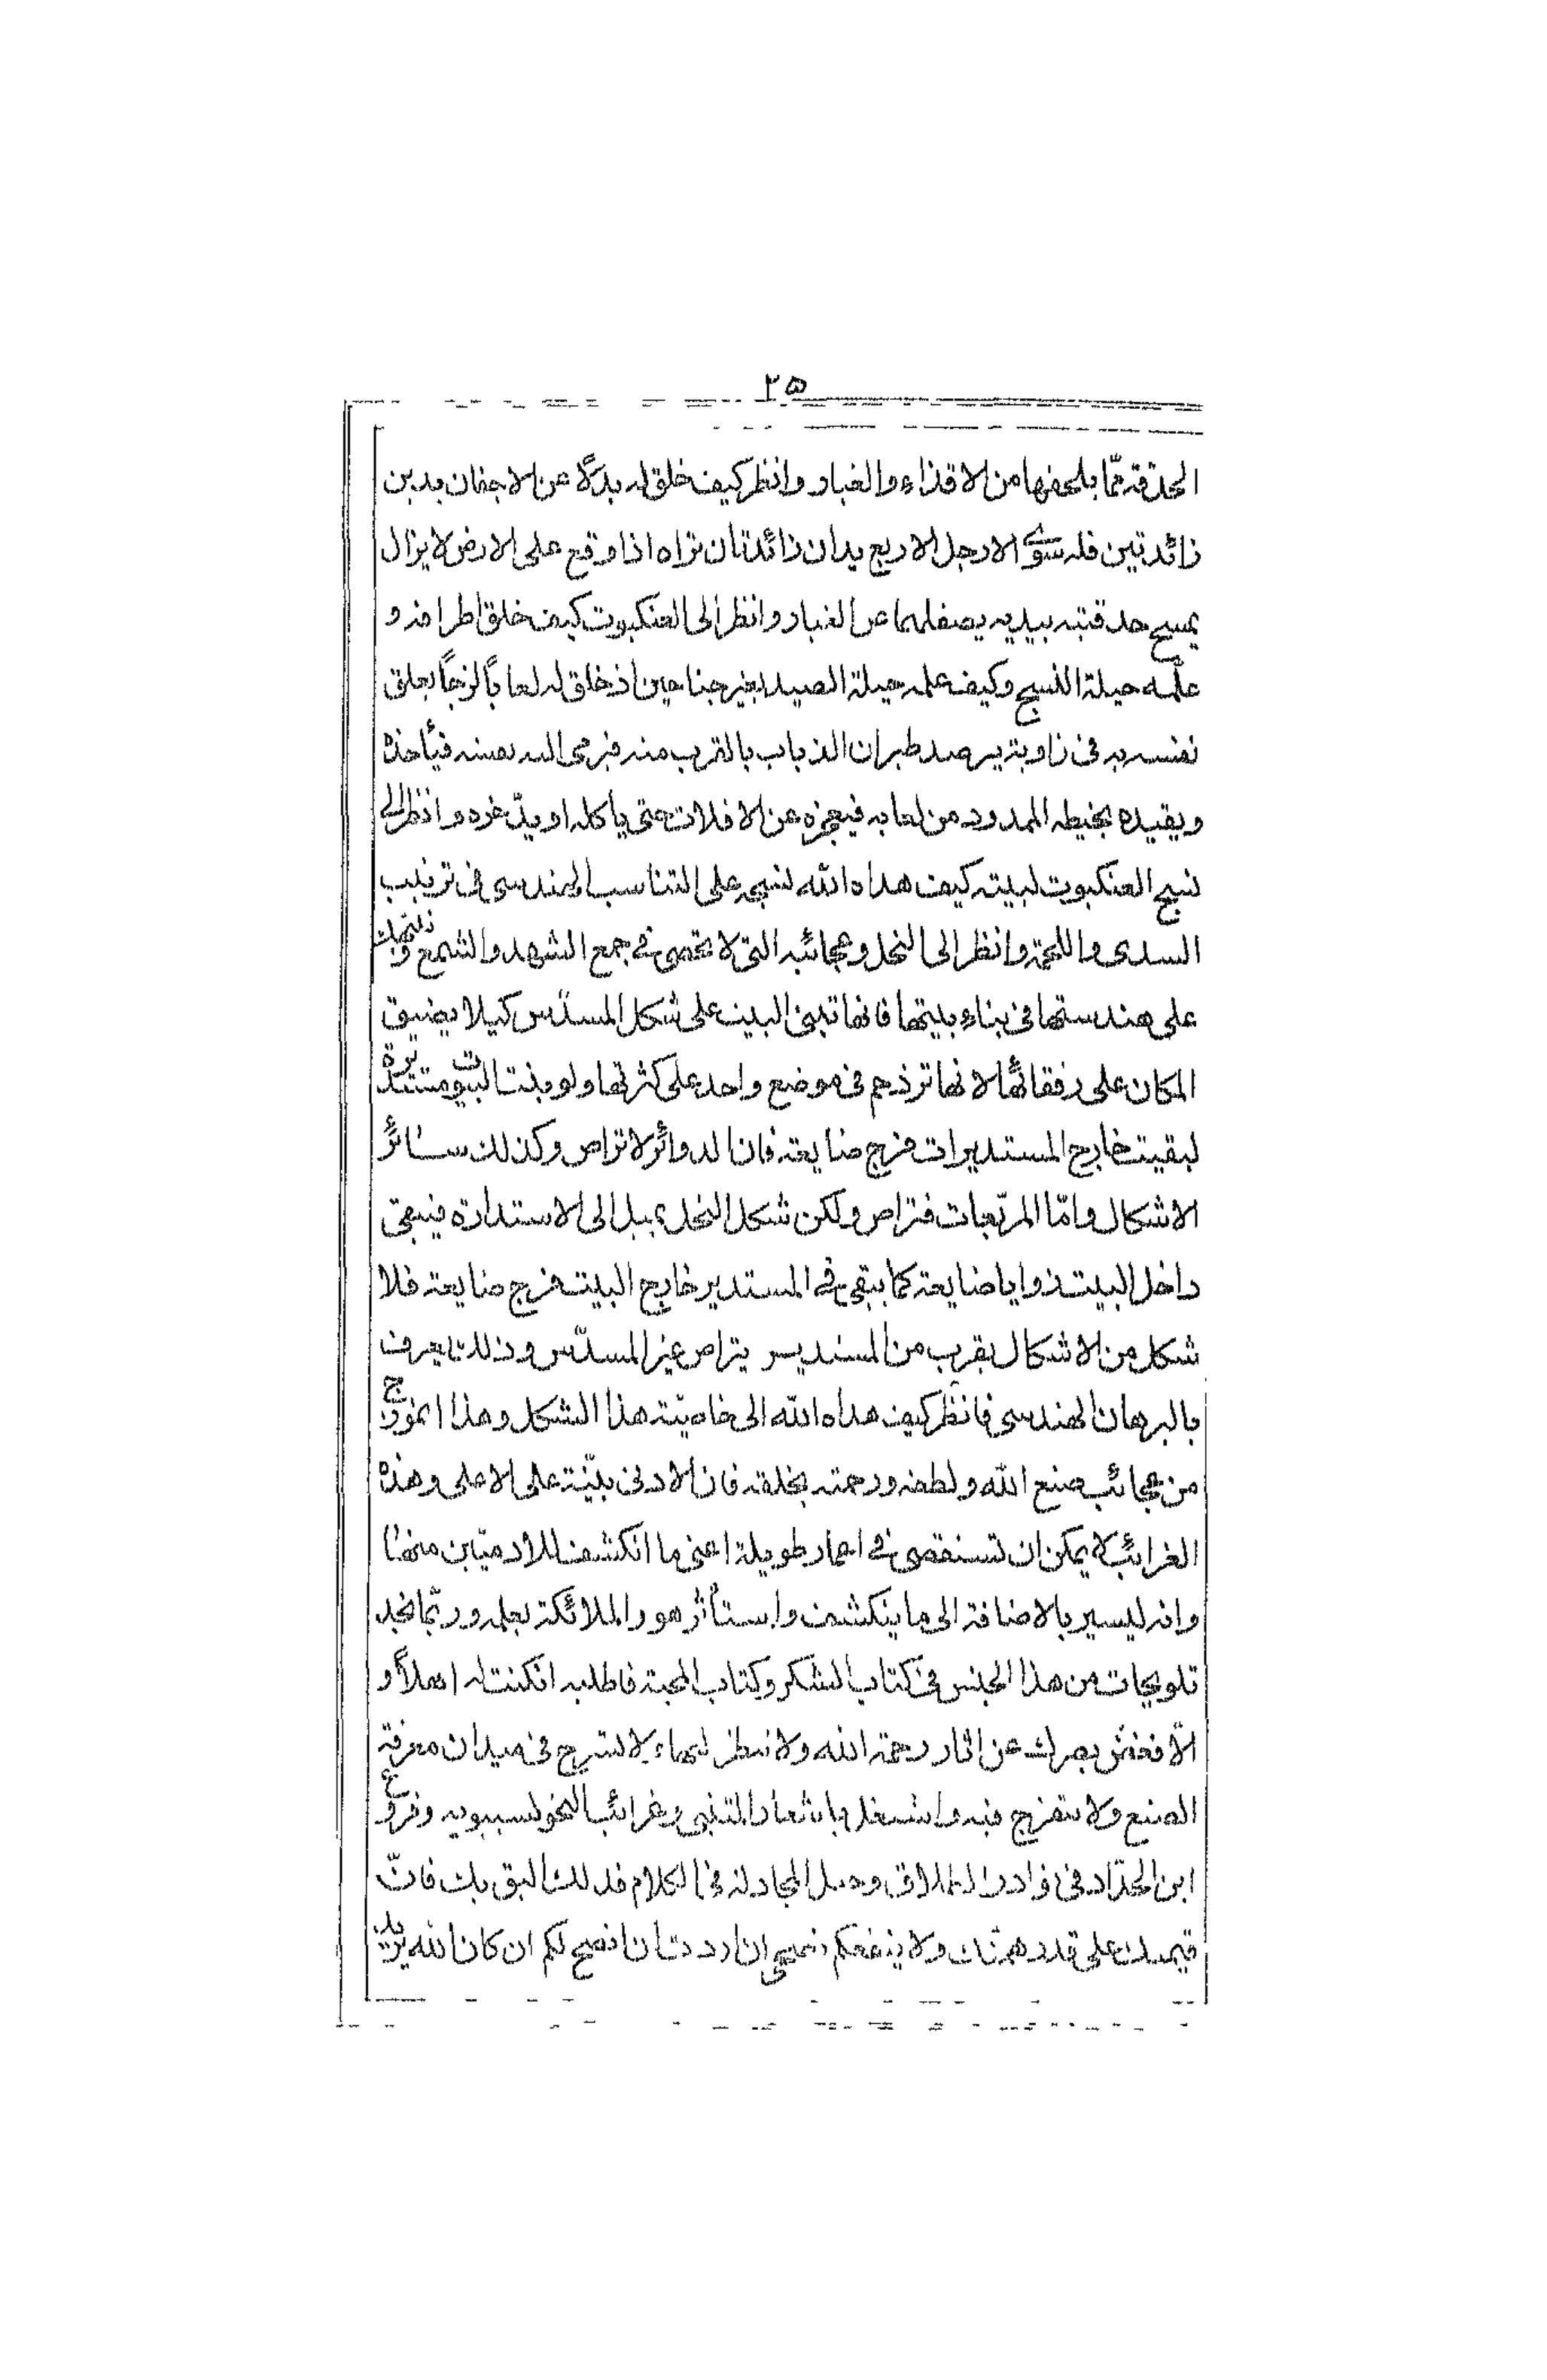 ٢٥
الحدقة ممّا يلحقها من الاقذاء والغبار وانظر كيف خلق له بدلًا عن الاجفان يدين
زائدتين فله سوى الارجل الاربع يدان زائدتان تراه اذا وقع على الارض لا يزال
يمسح حدقتيه بيديه يصقلهما عن الغبار وانظر الى العنكبوت كيف خلق اطرافه و
علّمه حيلة النسج وكيف علمه حيلة الصيد بغير جناحين اذ خلق له لعابًا لزجًا يعلق
نفسه به فى زاوية يرصد طيران الذباب بالقرب منه فيرمى اليه نفسه فيأخذه
ويقيده بخيطه الممدود من لعابه فيعجزه عن الافلات حتى يأكله او يدّخره وانظر الى
نسج العنكبوت لبيته كيف هداه الله لنسجه على التناسب الهندسى فى ترتيب
السدى واللحمة وانظر الى النحل وعجائبه التى لا تحصى فى جمع الشهد والشمع و
على هندستها فى بناء بيتها فانها تبنى البيت على شكل المسدّس كيلا يضيق
المكان على رفقائها لانها تزدحم فى موضع واحد على كثرتها ولو بنت البيوت مستديرة
لبقيت خارج المستديرات فرج ضايعة فان الدوائر لا تراص وكذلك سائر
الاشكال وامّا المربّعات فتراص ولكن شكل النحل يميل الى الاستدارة فيبقى
داخل البيت زوايا ضايعة كما يبقى فى المستدير خارج البيت فرج ضايعة فلا
شكل من الاشكال يقرب من المستدير يتراص غير المسدّس وذلك يعرف
بالبرهان الهندسى فانظر كيف هداه الله الى خاصيّة هذا الشكل وهذا انموذج
من عجائب صنع الله ولطفه ورحمته بخلقه فان الادنى بيّنة على الاعلى وهذه
الغرائب لا يمكن ان تستقصى فى اعمار طويلة اعنى ما انكشف للادميّين منها
وانه ليسير بالاضافة الى ما ينكشف واستأثر هو والملائكة بعلمه وربّما تجد
تلويحات من هذا الجنس فى كتاب الشكر وكتاب المحبة فاطلبه ان كنت له اهلاً و
الّا فغضّ بصرك عن اثار رحمة الله ولا تنظر اليها ولا تسرح فى ميدان معرفة
الصنع ولا تتفرج فيه واشتغل باشعار المتنبى وغرائب النحو لسيبويه وفروع
ابن الحدّاد فى نوادر الطلاق وحيل المجادلة فى الكلام فذلك اليق بك فانّ
قيمتك على قدر همتك ولا ينفعكم نصحى ان اردت ان انصح لكم ان كان الله يريد